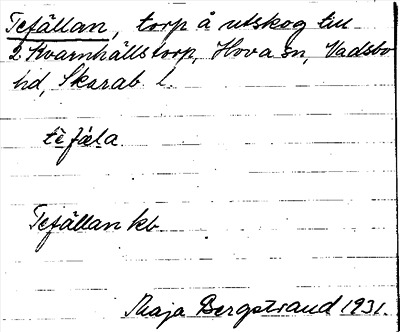 Tefällan, torp å utskog till
2 Kvarnhällstorp, Hova sn, Vadsbo
hd, Skarab. l.
tèfæla.
Tefällan kb.
Maja Bergstrand 1931.